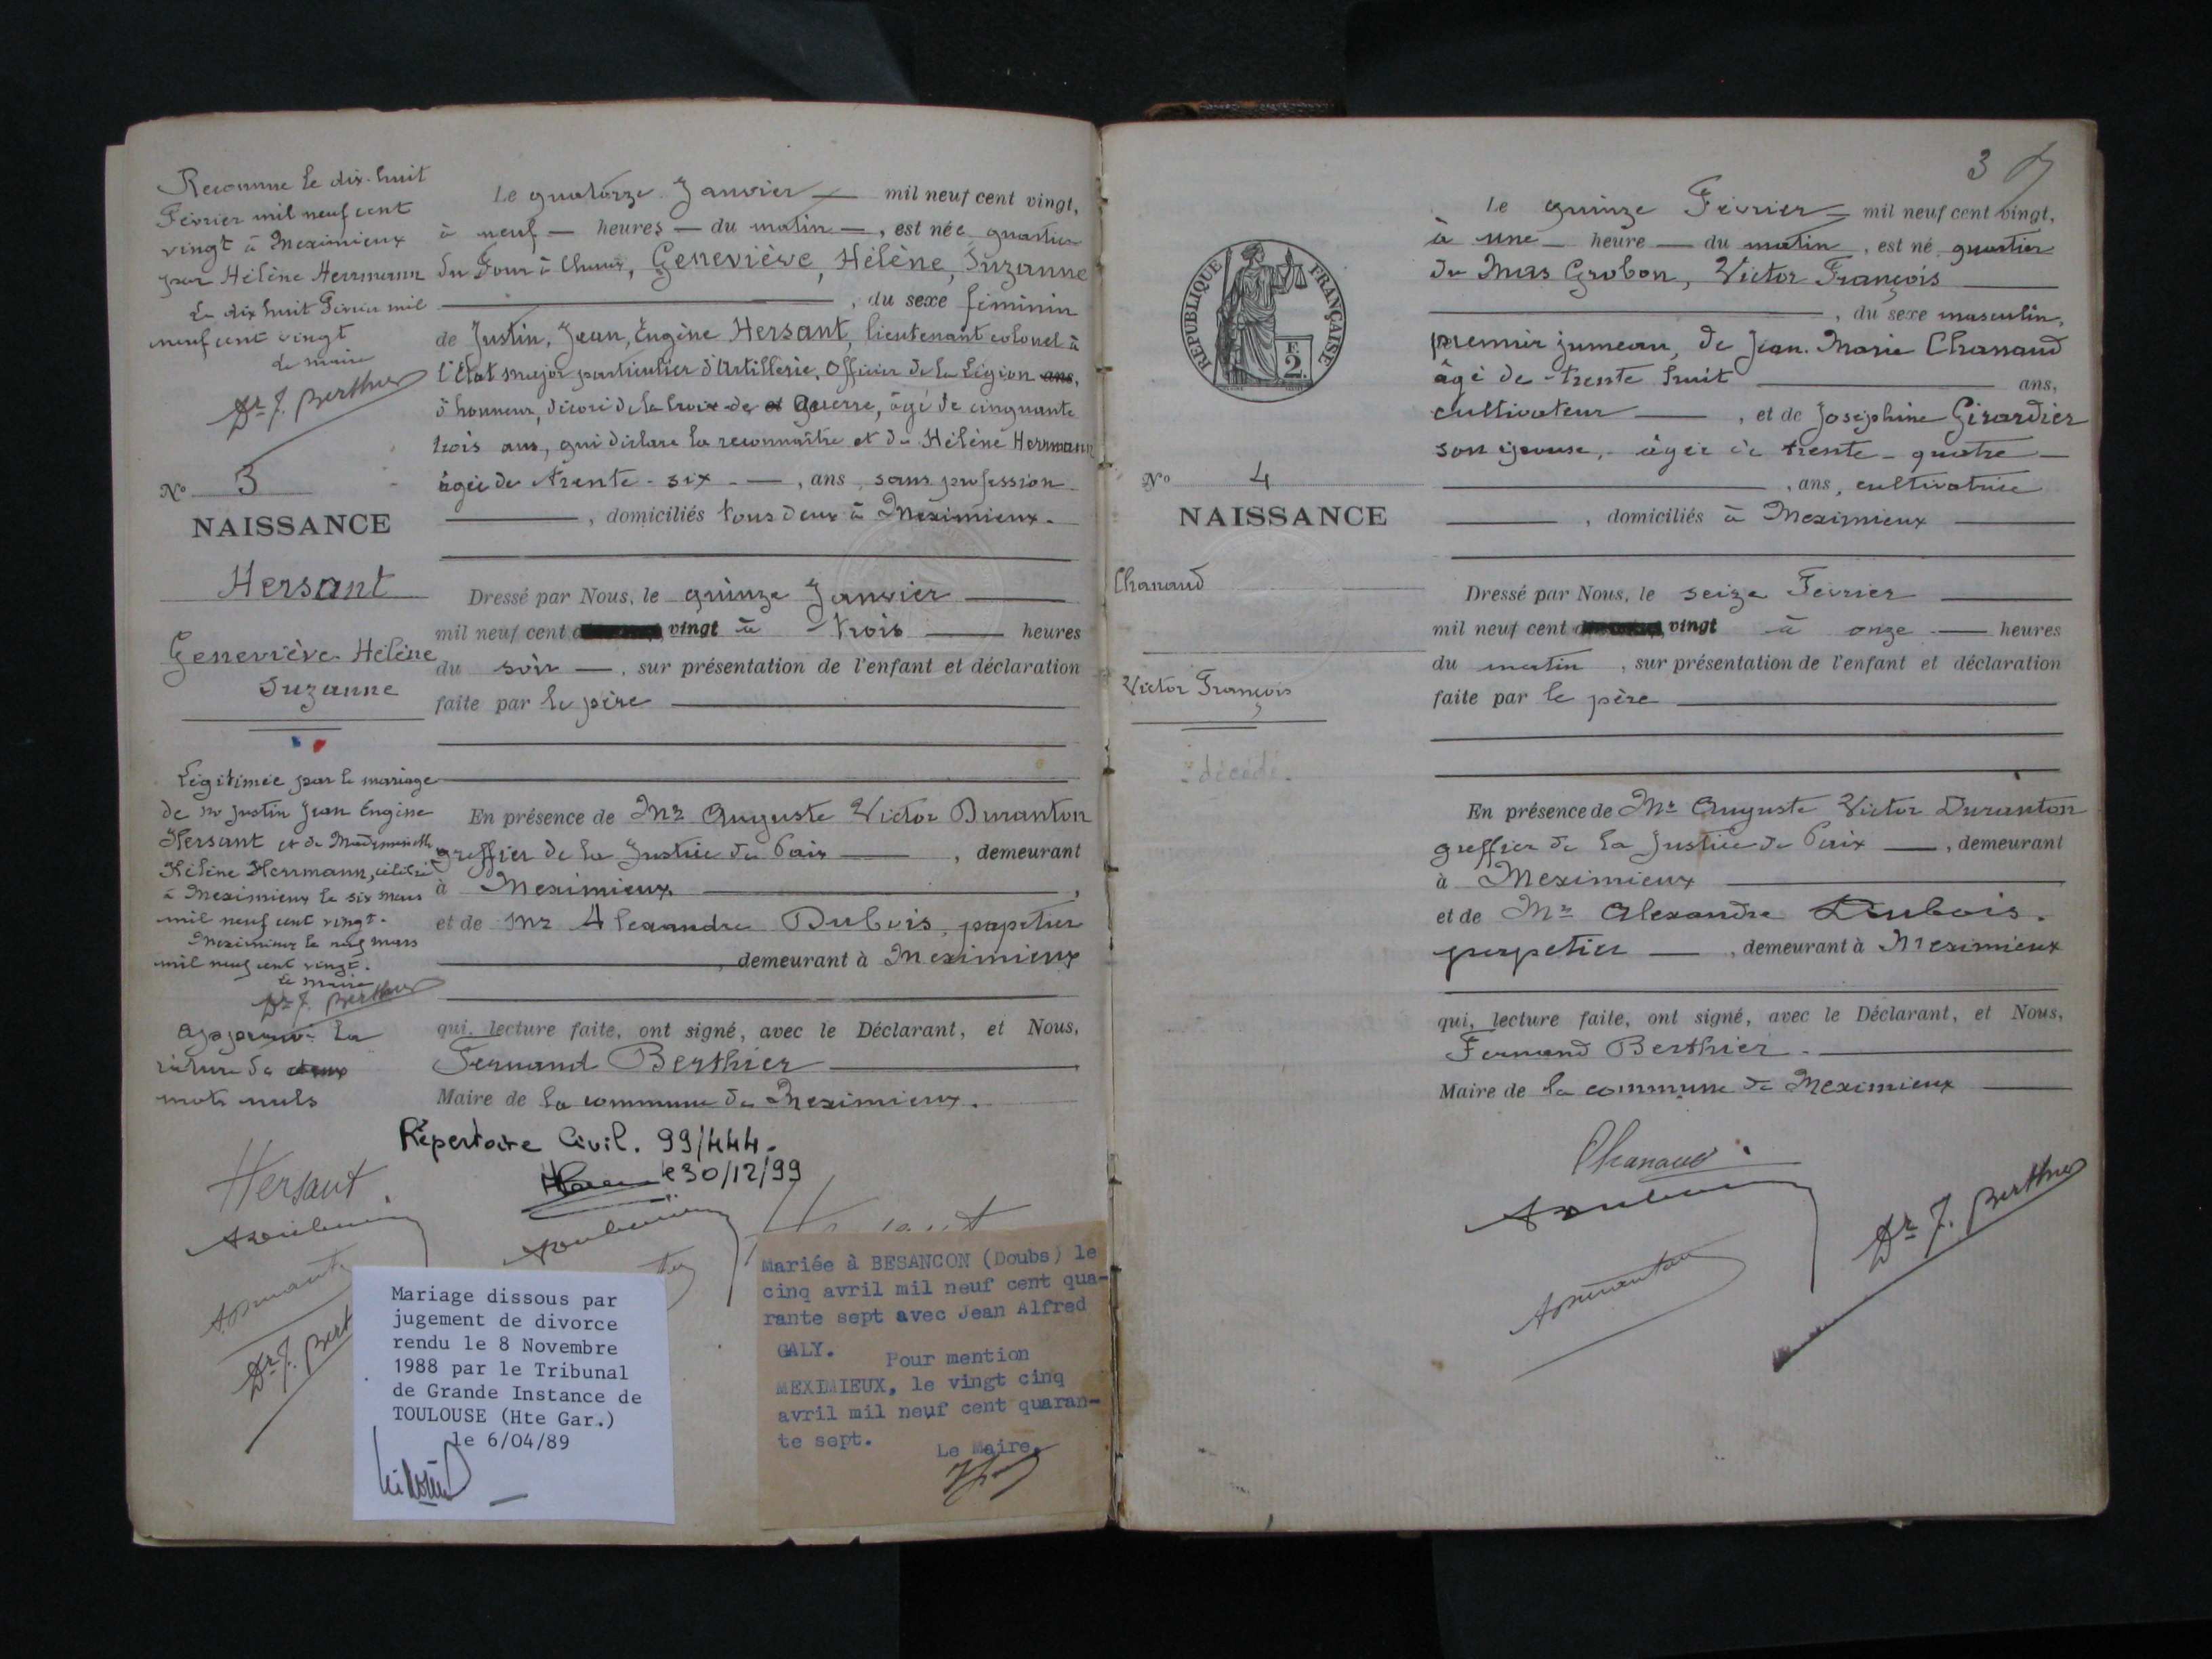 Reconnue le dix-huit
Février mil neuf cent
vingt à Meximieux
par Hélène Herrmann
Le dix huit Février mil
neuf cent vingt
Le maire
Dr F. Berthier
No 3
NAISSANCE
Hersant
Geneviève Hélène
Suzanne
Légitimée par le mariage
de Mr Justin Jean Eugène
Hersant et de Mademoiselle
Hélène Herrmann, célébré
à Meximieux le six mars
mil neuf cent vingt.
Meximieux le neuf mars
mil neuf cent vingt.
Le maire
Dr F. Berthier
Approuvé la
rature de deux
mots nuls
Le quatorze Janvier mil neuf cent vingt,
à neuf heures du matin, est née quartier
du Four à Chaux, Geneviève, Hélène, Suzanne
, du sexe féminin
de Justin, Jean, Eugène Hersant, lieutenant colonel à
l'Etat major particulier d'Artillerie, Officier de la Légion ans,
d'honneur, décoré de la Croix de et Guerre, âgé de cinquante
trois ans, qui déclare la reconnaître et de Hélène Herrmann
âgée de trente-six, ans, sans profession
, domiciliés tous deux à Meximieux.
Dressé par Nous, le quinze Janvier
mil neuf cent vingt à trois heures
du soir, sur présentation de l'enfant et déclaration
faite par le père
En présence de Mr Auguste Victor Duranton
greffier de la Justice de Paix, demeurant
à Meximieux,
et de Mr Alexandre Dubois, papetier
, demeurant à Meximieux
qui, lecture faite, ont signé, avec le Déclarant, et Nous,
Fernand Berthier
Maire de la commune de Meximieux.
Répertoire Civil. 99/444.
le 30/12/99
Hersant
Dr F. Bert
Mariage dissous par
jugement de divorce
rendu le 8 Novembre
1988 par le Tribunal
de Grande Instance de
TOULOUSE (Hte Gar.)
le 6/04/89
Mariée à BESANCON (Doubs) le
cinq avril mil neuf cent qua-
rante sept avec Jean Alfred
GALY. Pour mention
MEXIMIEUX, le vingt cinq
avril mil neuf cent quaran-
te sept.
Le Maire,
3
RÉPUBLIQUE FRANÇAISE
F.
2.
No 4
NAISSANCE
Chanaud
Victor François
décédé.
Le quinze Février mil neuf cent vingt,
à une heure du matin, est né quartier
du Mas Grobon, Victor François
, du sexe masculin,
premier jumeau, de Jean-Marie Chanaud
âgé de trente huit ans,
cultivateur, et de Joséphine Girardier
son épouse, âgée de trente-quatre
, ans, cultivatrice
, domiciliés à Meximieux
Dressé par Nous, le seize Février
mil neuf cent vingt à onze heures
du matin, sur présentation de l'enfant et déclaration
faite par le père
En présence de Mr Auguste Victor Duranton
greffier de la Justice de Paix, demeurant
à Meximieux
et de Mr Alexandre Dubois.
papetier, demeurant à Meximieux
qui, lecture faite, ont signé, avec le Déclarant, et Nous,
Fernand Berthier.
Maire de la commune de Meximieux
Chanaud
Dr F. Berthier